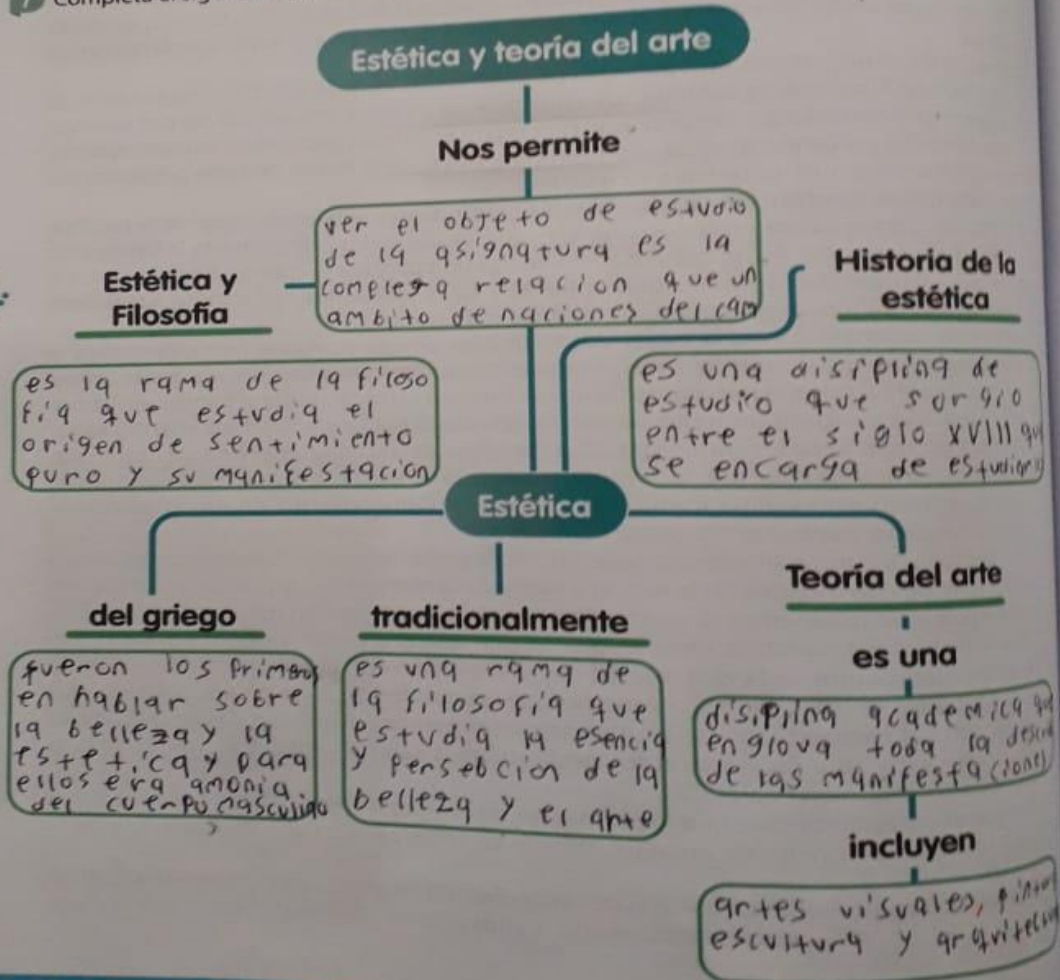 Estética y teoría del arte
Nos permite
ver el objeto de estudio
de la asignatura es la
compleja relacion que un
ambito de naciones del cam
Estética y
Filosofía
es la rama de la filoso
fia que estudia el
origen de sentimiento
puro y su manifestacion
Historia de la
estética
es una disiplina de
estudio que surgio
entre el siglo XVIII qu
se encarga de
Estética
del griego
fueron los primeros
en hablar sobre
la belleza y la
estetica y para
ellos era amonia
del cuerpo masculino
tradicionalmente
es una rama de
la filosofia que
estudia la esencia
y persebcion de la
belleza y el arte
Teoría del arte
es una
disiplina academica
englova toda la
de las manifestaciones
incluyen
artes visuales,
escultura y